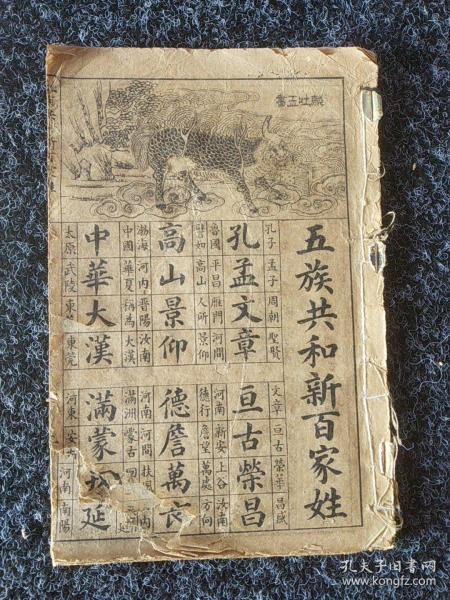 麟吐玉書
五族共和新百家姓
孔子 孟子 周朝 聖賢
文章 亘古 榮華 昌盛
孔孟文章
亘古榮昌
魯國 平昌 雁門 河間
河南 新安 上谷 汝南
譬如 高山 人所 景仰
德行 詹望 萬處 方向
高山景仰
德詹萬
渤海 河內 晋陽 汝南
河南 河間 扶 內
中國 華夏 稱為 大漢
滿洲 蒙古
中華大漢
滿蒙 延
太原 武陵 東 東莞
河東 安 河南 南陽
孔夫子旧书网
www.kongfz.com